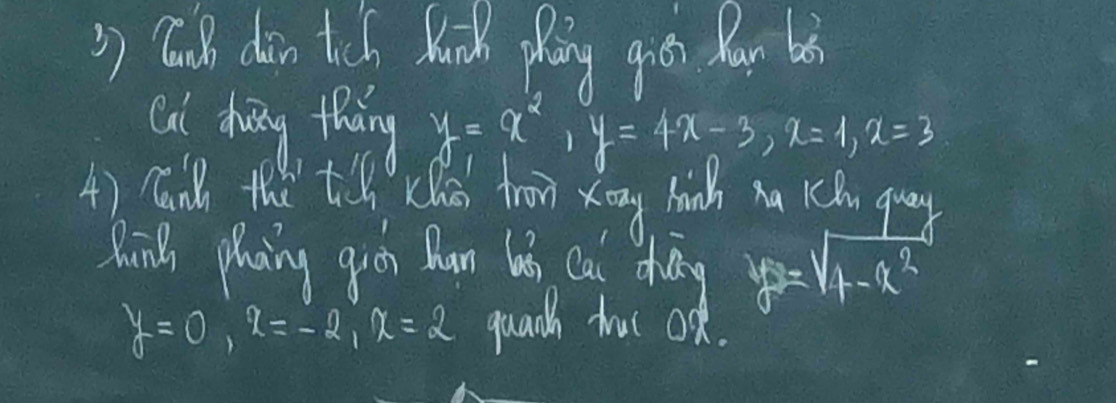 3) Tính diện tích hình phẳng giới hạn bởi
các đường thẳng y = x², y = 4x - 3, x = 1, x = 3
4) Tính thể tích khối tròn xoay sinh ra khi quay
hình phẳng giới hạn bởi các đường y = √(4 - x²)
y = 0, x = -2, x = 2 quanh trục Ox.